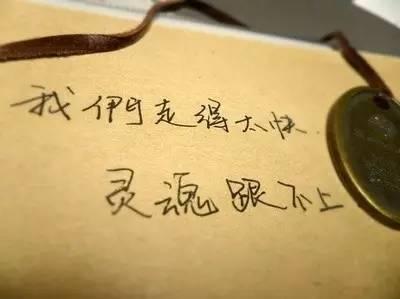 我們走得太快.
灵魂跟不上